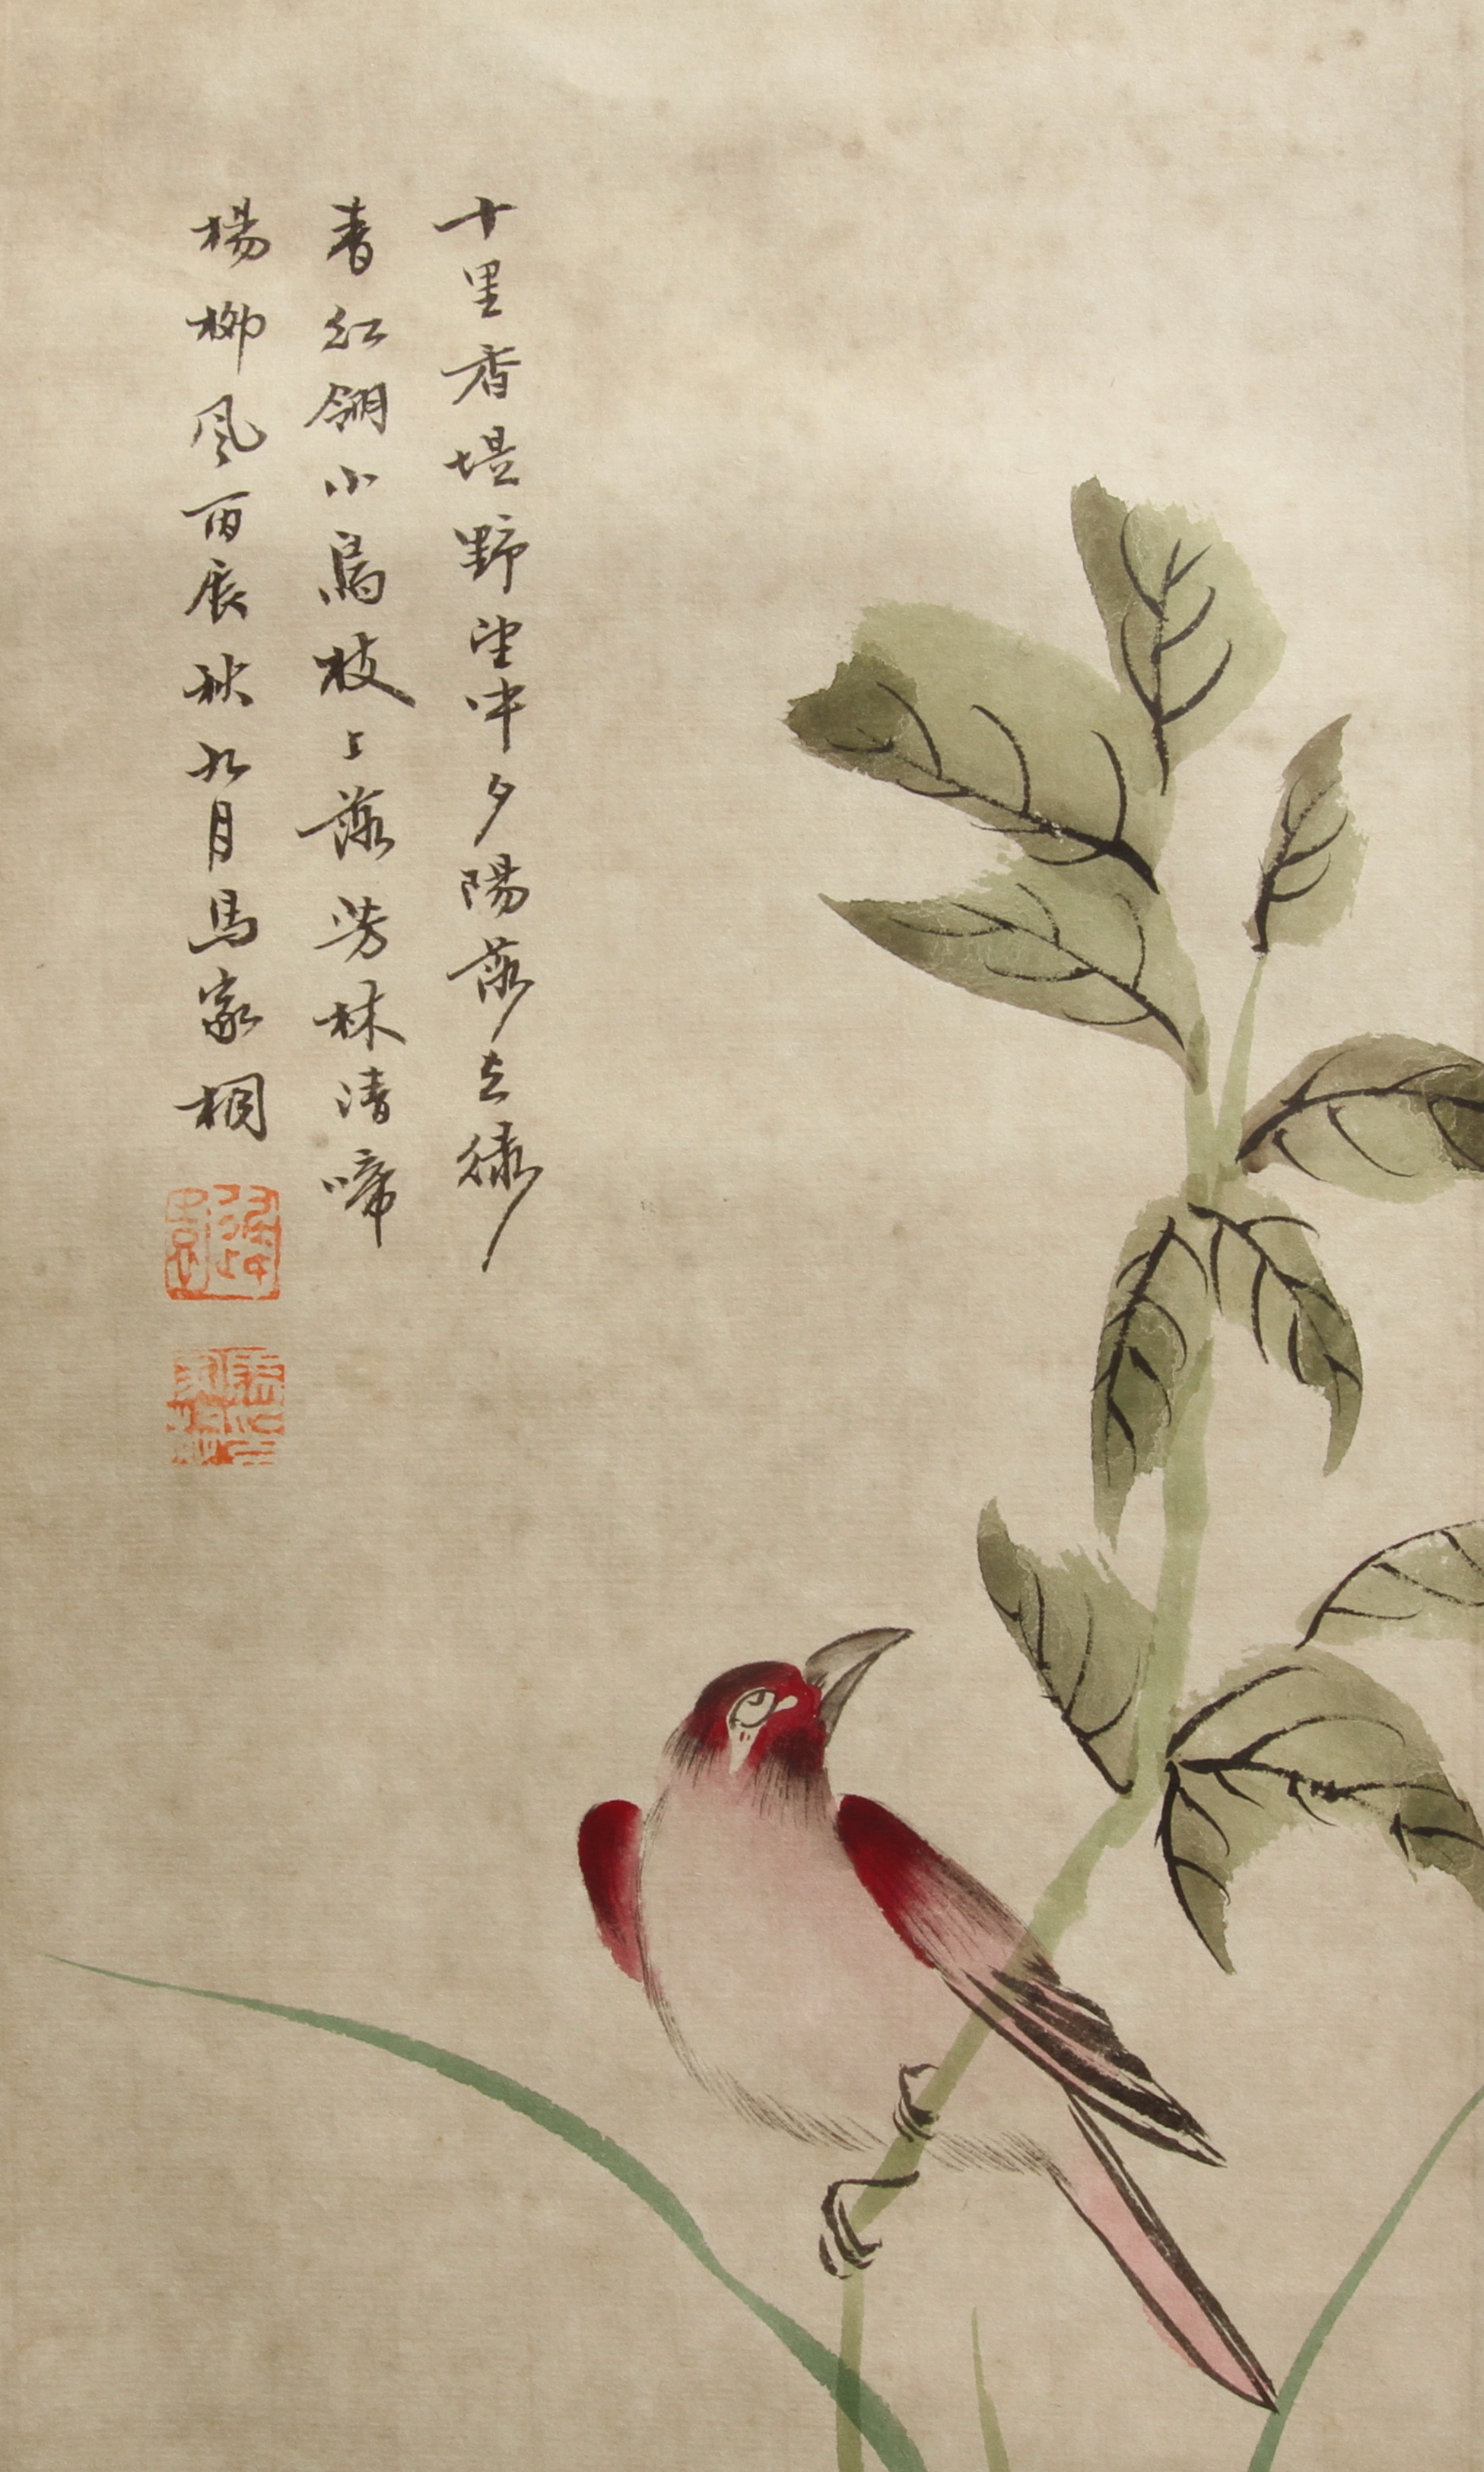 十里香堤野望中夕陽落去綠
春紅翎小鳥枝上落芳林清啼
楊柳風丙辰秋九月馬家桐